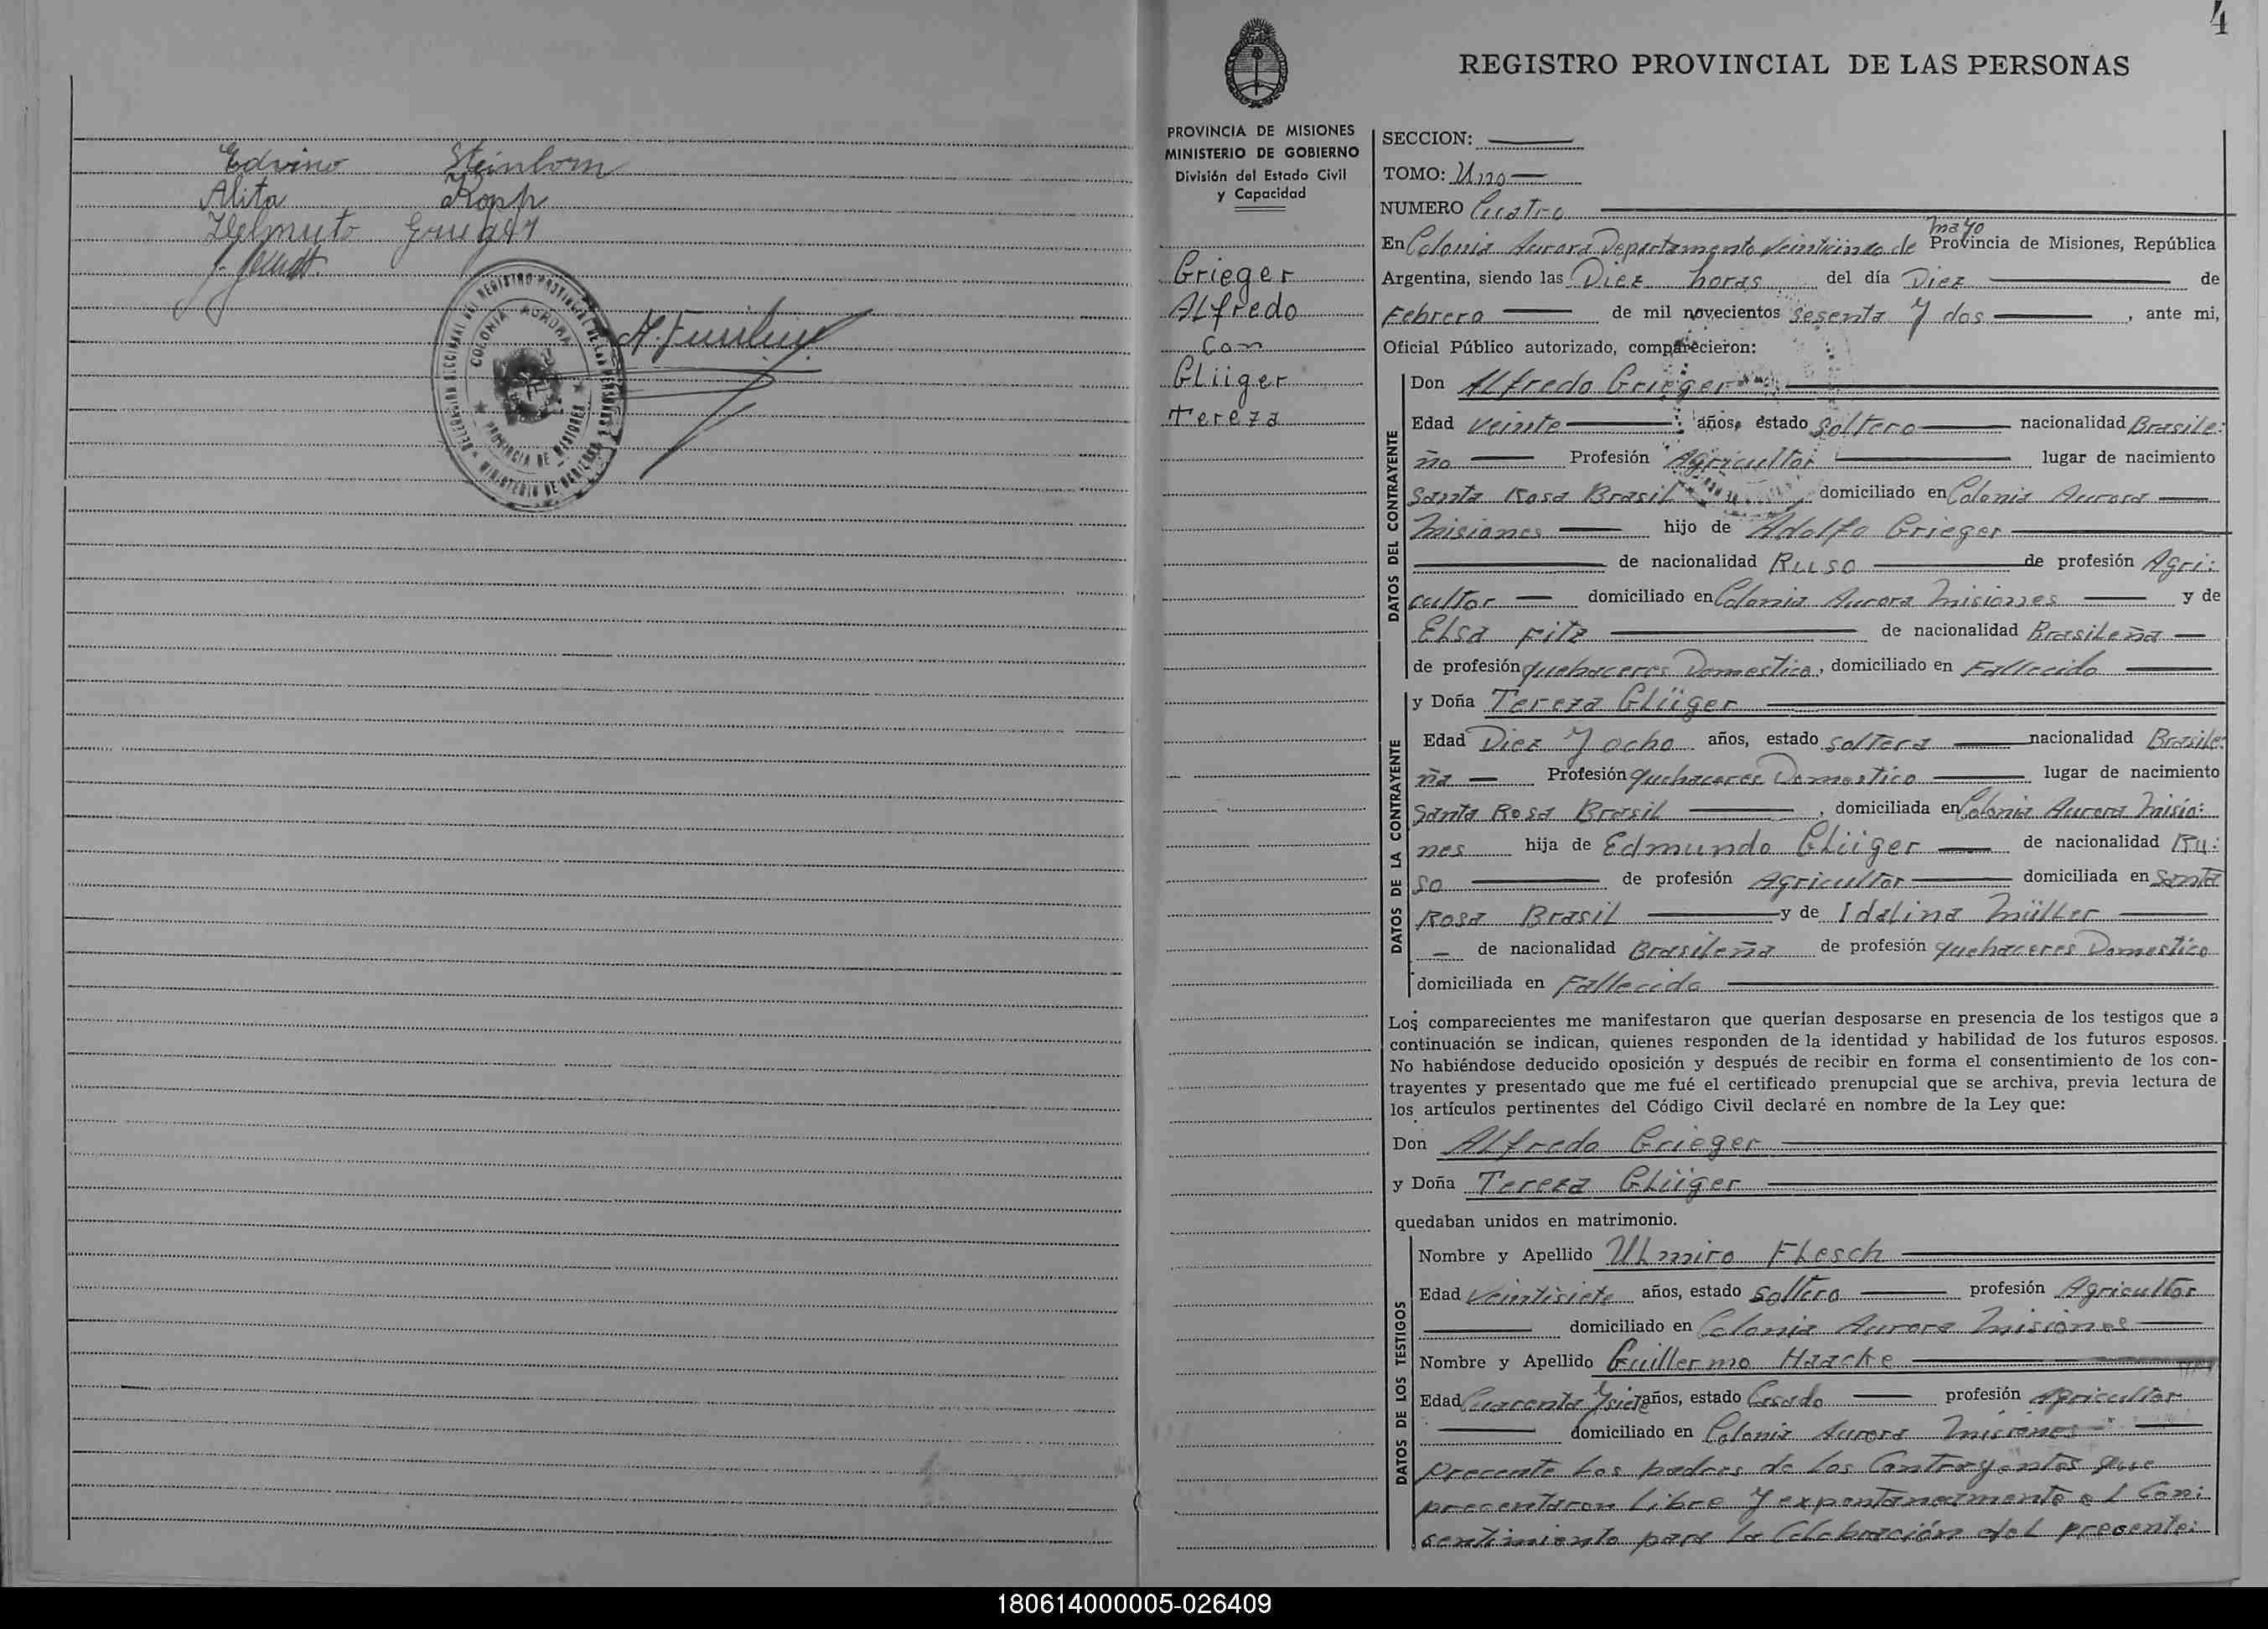 Edvino Steinborn
Alita Kopp
Helmuto Grieger
DELEGACION SECCIONAL DEL REGISTRO PROVINCIAL DE LAS PERSONAS
COLONIA AURORA
PROVINCIA DE MISIONES
MINISTERIO DE GOBIERNO
4
REGISTRO PROVINCIAL DE LAS PERSONAS
PROVINCIA DE MISIONES
MINISTERIO DE GOBIERNO
División del Estado Civil
y Capacidad
Grieger
Alfredo
Con
Glüger
Tereza
SECCION:
TOMO: Uno
NUMERO Cuatro
mayo
En Colonia Aurora Departamento Veinticinco de Provincia de Misiones, República
Argentina, siendo las Diez horas del día Diez de
Febrero de mil novecientos Sesenta y dos, ante mi,
Oficial Público autorizado, comparecieron:
DATOS DEL CONTRAYENTE
Don Alfredo Grieger
Edad Veinte años, estado Soltero nacionalidad Brasile:
ño Profesión Agricultor lugar de nacimiento
Santa Rosa Brasil, domiciliado en Colonia Aurora
Misiones hijo de Adolfo Grieger
de nacionalidad Ruso de profesión Agri:
cultor domiciliado en Colonia Aurora Misiones y de
Elsa Fitz de nacionalidad Brasileña
de profesión quehaceres Domestico, domiciliado en Fallecido
DATOS DE LA CONTRAYENTE
y Doña Tereza Glüger
Edad Diez y ocho años, estado soltera nacionalidad Brasile:
ña Profesión quehaceres Domestico lugar de nacimiento
Santa Rosa Brasil, domiciliada en Colonia Aurora Misio:
nes hija de Edmundo Glüger de nacionalidad Ru:
so de profesión Agricultor domiciliada en Santa
Rosa Brasil y de Idalina Müller
de nacionalidad Brasileña de profesión quehaceres Domestico
domiciliada en Fallecida
Los comparecientes me manifestaron que querían desposarse en presencia de los testigos que a
continuación se indican, quienes responden de la identidad y habilidad de los futuros esposos.
No habiéndose deducido oposición y después de recibir en forma el consentimiento de los con-
trayentes y presentado que me fué el certificado prenupcial que se archiva, previa lectura de
los artículos pertinentes del Código Civil declaré en nombre de la Ley que:
Don Alfredo Grieger
y Doña Tereza Glüger
quedaban unidos en matrimonio.
DATOS DE LOS TESTIGOS
Nombre y Apellido Ulmiro Flesch
Edad Veintisiete años, estado Soltero profesión Agricultor
domiciliado en Colonia Aurora Misiones
Nombre y Apellido Guillermo Haacke
Edad Cuarenta y siete años, estado Casado profesión Agricultor
domiciliado en Colonia Aurora Misiones
precente los padres de los Contrayentes que
precentaron libre y expontaneamente el Con:
sentimiento para la Celebración del precente:
180614000005-026409